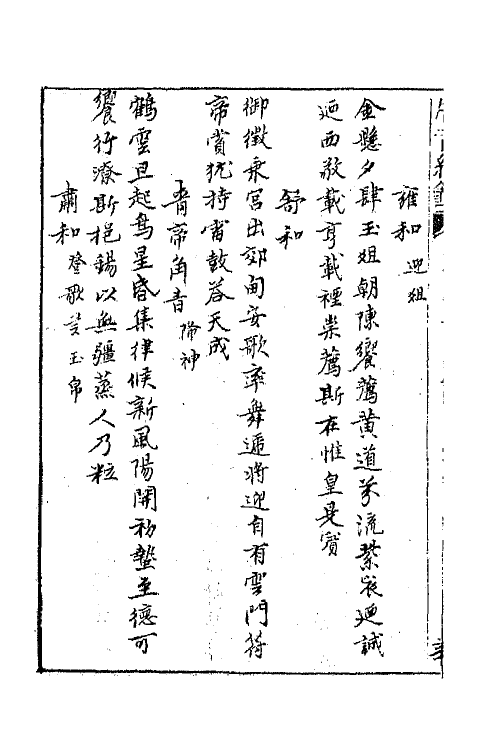 雍和 迎俎
金懸夕肆玉俎朝陳饗薦黄道芬流紫辰迺誠
迺西敬載享載禋崇薦斯在惟皇是賓
舒和
御徵乗宮出郊甸安歌率舞遞将迎自有雲門符
帝賞犹持雷鼓荅天成
青帝角音 降神
鶴雲旦起鳥星昏集律候新風陽開初蟄至德可
饗行潦斯挹錫以無疆蒸人乃粒
肅和 登歌奠玉帛